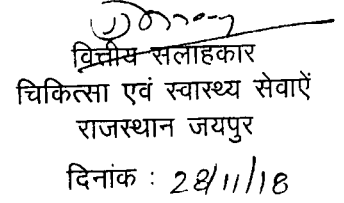 वित्तीय सलाहकार
चिकित्सा एवं स्वास्थ्य सेवाऐं
राजस्थान जयपुर
दिनांक : 28/11/18